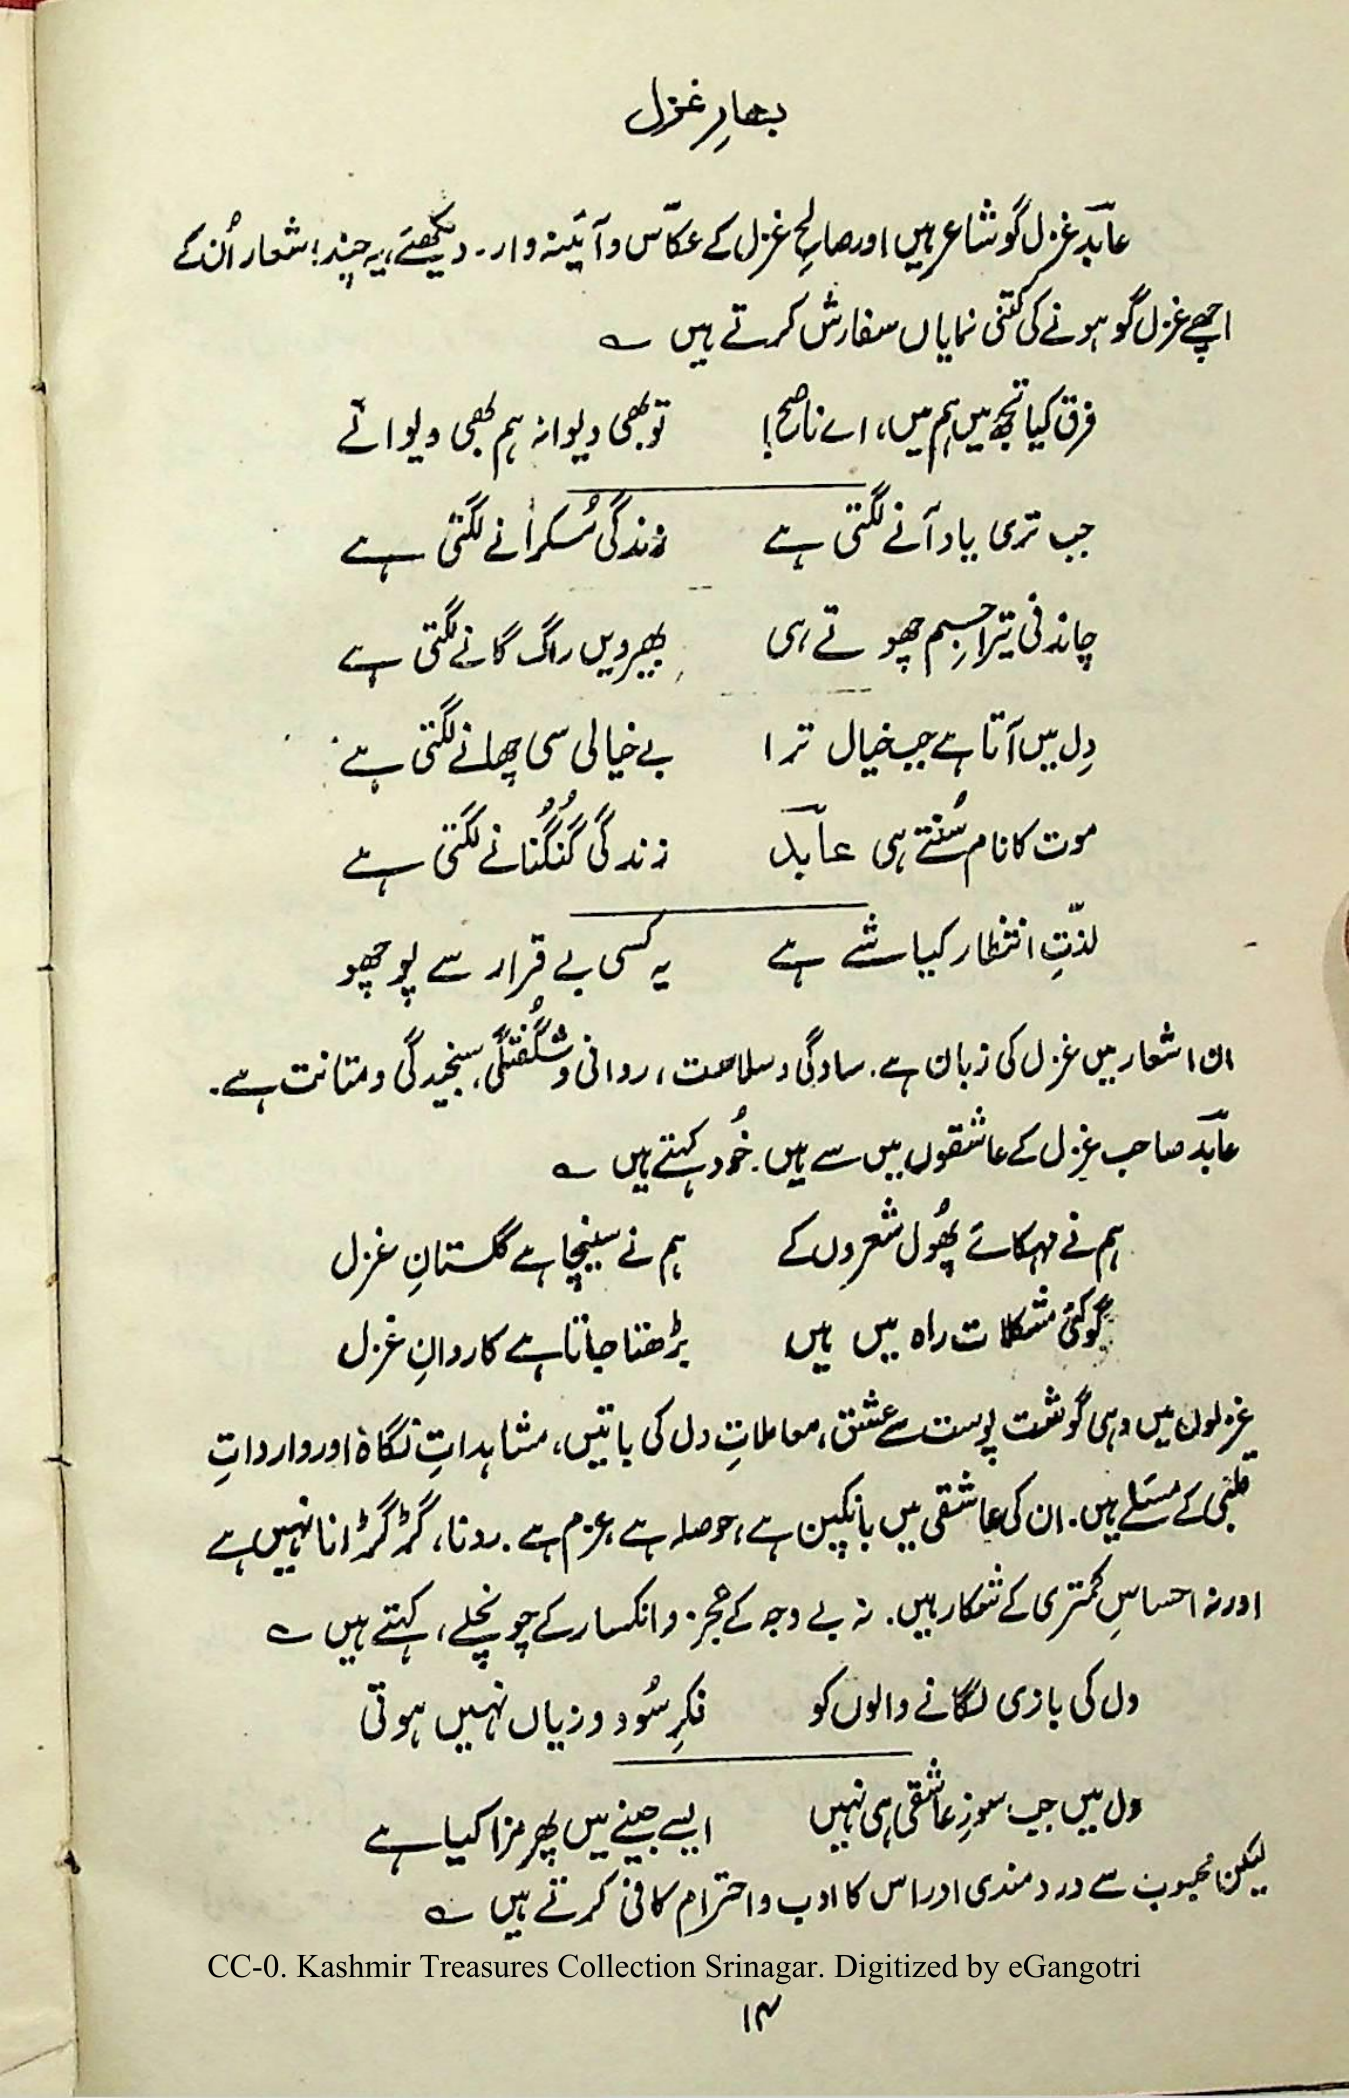 بہارِ غزل
عابدؔ غزل گو شاعر ہیں اور صالح غزل کے عکاس و آئینہ وار۔ دیکھئے، یہ چند اشعار اُن کے
اچھے غزل گو ہونے کی کتنی نمایاں سفارش کرتے ہیں ؎
فرق کیا تجھ میں ہم میں، اے ناصح! تو بھی دیوانہ ہم بھی دیوانے
جب تری یاد آنے لگتی ہے زندگی مُسکرانے لگتی ہے
چاندنی تیرا جِسم چھوتے ہی بھیرویں راگ گانے لگتی ہے
دِل میں آتا ہے جب خیال ترا بے خیالی سی چھانے لگتی ہے
موت کا نام سُنتے ہی عابدؔ زندگی گُنگُنانے لگتی ہے
لذّتِ انتظار کیا شے ہے یہ کسی بے قرار سے پوچھو
ان اشعار میں غزل کی زبان ہے۔ سادگی و سلاست، روانی و شگُفتگی، سنجیدگی و متانت ہے۔
عابدؔ صاحب غزل کے عاشقوں میں سے ہیں۔ خُود کہتے ہیں ؎
ہم نے مہکائے پھُول شعروں کے ہم نے سینچا ہے گلستانِ غزل
گو کئی مشکلات راہ میں ہیں بڑھتا جاتا ہے کاروانِ غزل
غزلوں میں وہی گوشت پوست سے عشق، معاملاتِ دل کی باتیں، مشاہداتِ نگاہ اور وارداتِ
قلبی کے مسئلے ہیں۔ ان کی عاشقی میں بانکپن ہے، حوصلہ ہے، عزم ہے۔ رونا، گڑگڑانا نہیں ہے
اور نہ احساسِ کمتری کے شکار ہیں۔ نہ بے وجہ کے عجز و انکسار کے چونچلے، کہتے ہیں ؎
دل کی بازی لگانے والوں کو فکرِ سُود و زیاں نہیں ہوتی
دل میں جب سوزِ عاشقی ہی نہیں ایسے جینے میں پھر مزا کیا ہے
لیکن محبوب سے دردمندی اور اس کا ادب و احترام کافی کرتے ہیں ؎
CC-0. Kashmir Treasures Collection Srinagar. Digitized by eGangotri
۱۴